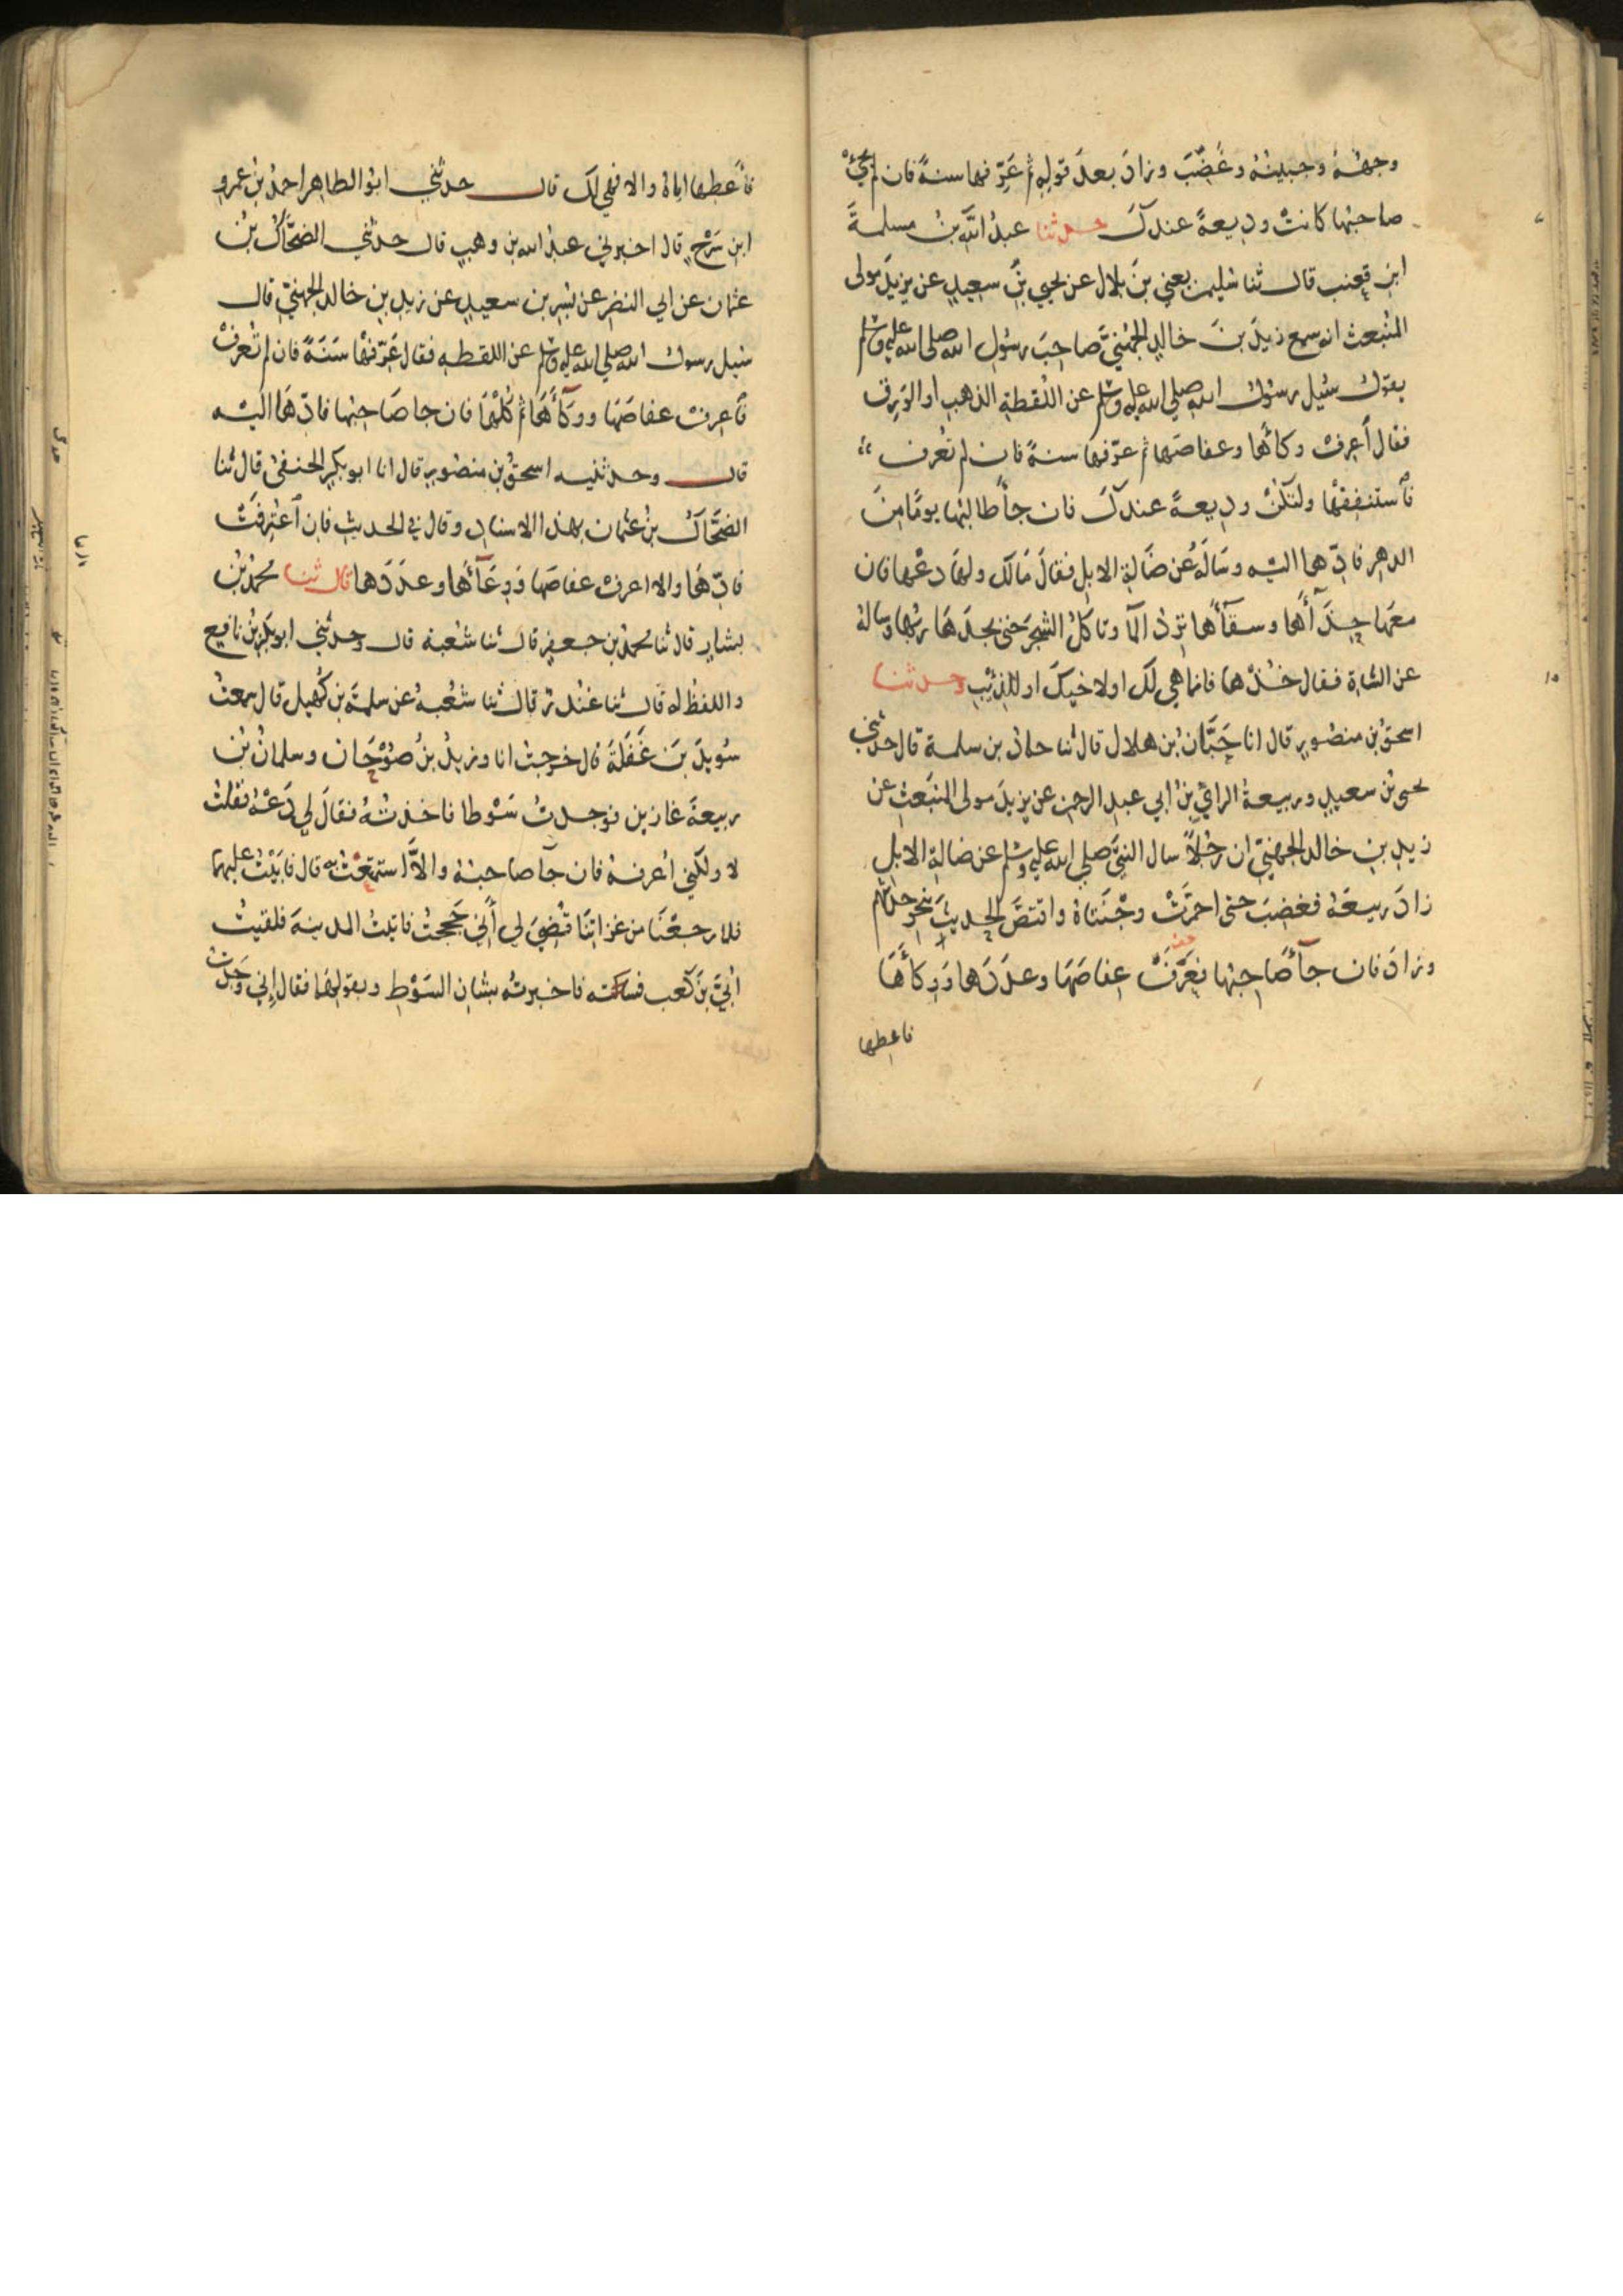 وجههُ وجبينُهُ وغَضِبَ وزادَ بعدَ قولِهِ ثم عَرِّفها سنةً فان لم يجئْ
صاحبُها كانتْ وديعةً عندكَ حدثنا عبدُ اللّهِ بنُ مسلمةَ
ابنِ قعنب قال ثنا سُليمن يعني بنَ بلال عن يحيي بنِ سعيدٍ عن يزيدَ مولى
المُنْبَعث انه سمع زيدَ بنَ خالدٍ الجُهَنيَّ صاحبَ رسُولِ اللهِ صلى الله عليه وسلم
يقول سُئِل رسُول اللهِ صلي الله عليه وسلم عن اللُقطةِ الذهبِ اوالوَرِقِ
فقال اَعرِفْ وِكاءَها وعفاصَها ثم عرّفها سنةً فان لم تُعرف
فاَستنفِقْها ولتكُنْ وديعةً عندكَ فان جاءَ طالبُها يومًا مِنَ
الدهرِ فادِّها اليْهِ وسَالَهُ عن ضَالةِ الابلِ فقالَ مَالكَ ولها دَعْها فان
معَها حِذَآءَها وسِقآءَها تَرِدُ المآ وتاكلُ الشجرَ حتى يجدَهَا ربُّها وسالهُ
عن الشاةِ فقال خُذْها فانما هي لكَ اولاخيكَ اوللذئبِ وحدثنا
اسحقُ بن منصُورٍ قال انا حَبَّان بن هلال قال ثنا حماد بن سلمة قال حدثني
يحيى بن سعيدٍ وربيعةُ الرأيِ بنُ ابي عبدِ الرحمن عن يزيدَ مولى المُنْبَعثِ عن
زيدِ بنِ خالد الجهنيّ ان رجُلاً سال النبيَّ صلي الله عليه وسلم عن ضالةِ الابلِ
زادَ ربيعَةُ فغضِبَ حتى احمرَّتْ وجْنَتاهُ واقتصَّ الحديثَ بنحو حديثهم
وزادَ فان جآءَ صَاحِبُها فعَرَفَ عِفاصَهَا وعددَها ووِكاءَهَا
فاعطها
فاَعطِها اياهُ والا فهي لكَ قال حدثني ابُو الطاهر احمدُ بنُ عمرو
ابن سَرْحٍ قال اخبرني عبدُ الله بن وهبٍ قال حدثني الضحَّاكُ بنُ
عثمان عن ابي النضر عن بُسرِ بن سعيدٍ عن زيدِ بنِ خالد الجهنيّ قال
سُئِل رسول اللهِ صلي الله عليه وسلم عن اللقطهِ فقال عَرِّفها سَنَةً فان لم تُعرفْ
فاَعرفْ عفاصَها ووِكآءَهَا ثم كُلْهَا فان جا صَاحبُها فادِّهَا اليْهِ
قال وحدثنيهِ اسحقُ بن منصُورٍ قال انا ابو بكرٍ الحنفيُّ قال ثنا
الضحَّاكُ بنُ عثمان بهذا الاسنادِ وقال في الحديثِ فان اَعْتُرِفَتْ
فادِّهَا والا اعرفْ عفاصَها ووِعَآءَها وعدَدَها قال ثنا محمدُ بنُ
بشارٍ قال ثنا محمدُ بن جعفرٍ قال ثنا شُعبةُ قال وحدثني ابوبكرِ بنُ نافِعٍ
واللفظُ له قال ثنا غُنْدرٌ قال ثنا شعْبهُ عن سلمةَ بن كُهَيل قال سمعتُ
سُويدَ بنَ غَفَلَةَ قال خرجتُ انا وزيدُ بنُ صُوْحَان وسلمانُ بنُ
ربيعةَ غازين فوجدتُ سَوْطا فاخذتُهُ فقالَ لي دَعْهُ فقلتُ
لا ولكني اُعرفهُ فان جآ صاحبهُ والاَّ استمتعْتُ به قال فاَبَيْتُ عليهما
فلما رجعْنَا من غزاتِنَا قُضِيَ لي أَني حَججتُ فاتيتُ المدينةَ فلقيتُ
اُبَيَّ بنَ كَعبٍ فسالته فاخبرتُه بشانِ السَوْطِ وبقولِهمَا فقال إِني وَجدْتُ